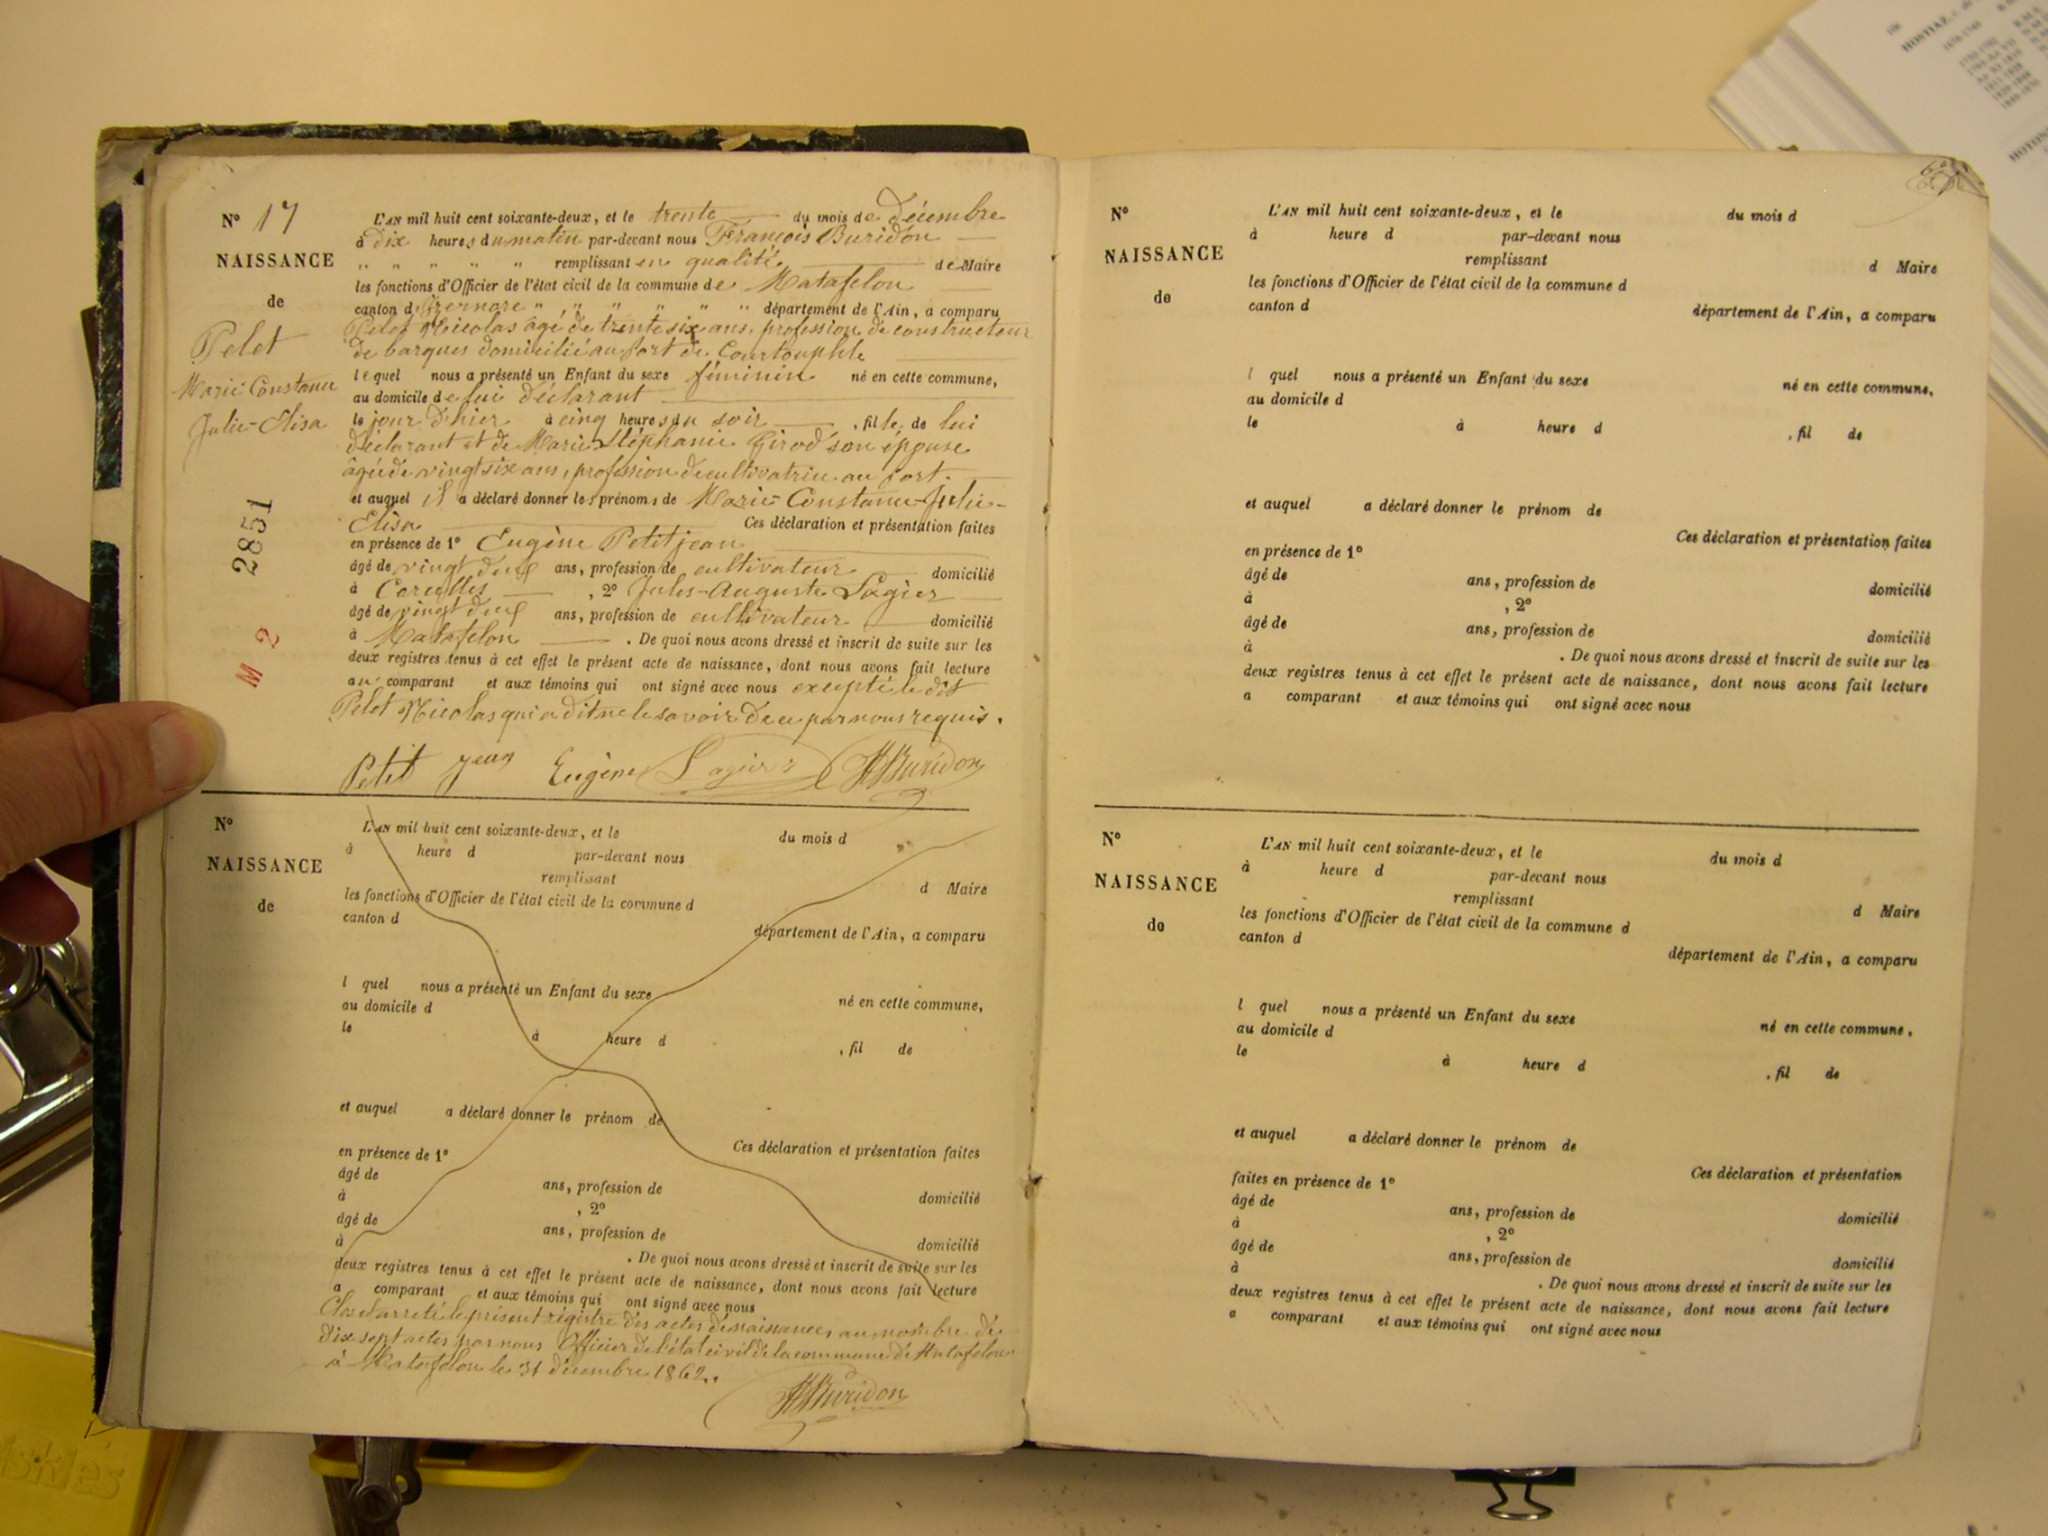 N° 17
NAISSANCE
de
Pelet
Marie Constance
Julie-Elisa
2851
M 2
L'AN mil huit cent soixante-deux, et le trente du mois de décembre
à dix heures du matin par-devant nous François Buridon
" " " " " remplissant en qualité de Maire
les fonctions d'Officier de l'état civil de la commune de Matafelon
canton d'Izernore " " " " " " département de l'Ain, a comparu
Pelet Nicolas âgé de trente six ans, profession de constructeur
de barques domicilié au port de Courtouphle
lequel nous a présenté un Enfant du sexe féminin né en cette commune,
au domicile de lui déclarant
le jour d'hier à cinq heures du soir, fille, de lui
déclarant et de Marie Stéphanie Girod son épouse
âgée de vingt six ans, profession de cultivatrice au port.
et auquel il a déclaré donner les prénoms de Marie-Constance-Julie-
Elisa Ces déclaration et présentation faites
en présence de 1° Eugène Petitjean
âgé de vingt ans, profession de cultivateur domicilié
à , 2° Jules-Auguste Lagier
âgé de vingt ans, profession de cultivateur domicilié
à Matafelon . De quoi nous avons dressé et inscrit de suite sur les
deux registres tenus à cet effet le présent acte de naissance, dont nous avons fait lecture
au comparant et aux témoins qui ont signé avec nous excepté le dit
Pelet Nicolas qui a dit ne le savoir de ce par nous requis.
Petit jean Eugène Lagier Buridon
N°
NAISSANCE
de
L'AN mil huit cent soixante-deux, et le du mois d
à heure d par-devant nous
remplissant
d Maire
les fonctions d'Officier de l'état civil de la commune d
canton d
département de l'Ain, a comparu
l quel nous a présenté un Enfant du sexe né en cette commune,
au domicile d
le à heure d , fil de
et auquel a déclaré donner le prénom de
Ces déclaration et présentation faites
en présence de 1°
âgé de ans, profession de domicilié
à , 2°
âgé de ans, profession de domicilié
à . De quoi nous avons dressé et inscrit de suite sur les
deux registres tenus à cet effet le présent acte de naissance, dont nous avons fait lecture
a comparant et aux témoins qui ont signé avec nous
Clos et arreté le présent régistre des actes de naissances au nombre de
dix sept actes par nous Officier de l'état civil de la commune de Matafelon
à Matafelon le 31 décembre 1862.
Buridon
N°
NAISSANCE
de
L'AN mil huit cent soixante-deux, et le du mois d
à heure d par-devant nous
remplissant
d Maire
les fonctions d'Officier de l'état civil de la commune d
canton d
département de l'Ain, a comparu
l quel nous a présenté un Enfant du sexe né en cette commune,
au domicile d
le à heure d , fil de
et auquel a déclaré donner le prénom de
Ces déclaration et présentation faites
en présence de 1°
âgé de ans, profession de domicilié
à , 2°
âgé de ans, profession de domicilié
à . De quoi nous avons dressé et inscrit de suite sur les
deux registres tenus à cet effet le présent acte de naissance, dont nous avons fait lecture
a comparant et aux témoins qui ont signé avec nous
N°
NAISSANCE
de
L'AN mil huit cent soixante-deux, et le du mois d
à heure d par-devant nous
remplissant
d Maire
les fonctions d'Officier de l'état civil de la commune d
canton d
département de l'Ain, a comparu
l quel nous a présenté un Enfant du sexe né en cette commune,
au domicile d
le à heure d , fil de
et auquel a déclaré donner le prénom de
Ces déclaration et présentation
faites en présence de 1°
âgé de ans, profession de domicilié
à , 2°
âgé de ans, profession de domicilié
à . De quoi nous avons dressé et inscrit de suite sur les
deux registres tenus à cet effet le présent acte de naissance, dont nous avons fait lecture
a comparant et aux témoins qui ont signé avec nous